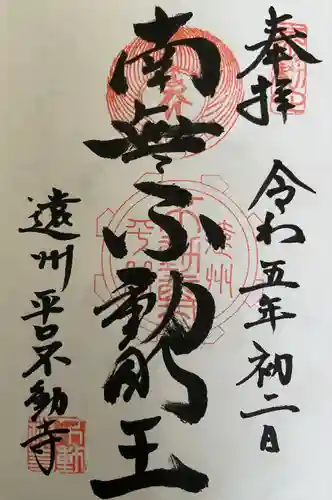 奉拝
令和五年初二日
南無不動明王
遠州平口不動寺